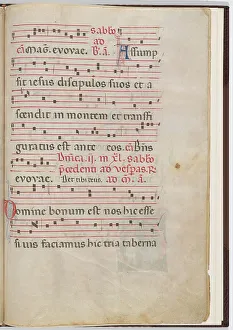 sabbō
ad
cī M̄agn̄. evovae. B̄. ā. Assump
sit iesus discipulos suos et a
scendit in montem et transfi
guratus est ante eos.
Dn̄ica .ii. in xl. sabbō
precedenti ad vesp̄as. R̄.
evovae. Det tibi deus. ad M̄. ā.
Domine bonum est nos hic esse
si vis faciamus hic tria taberna